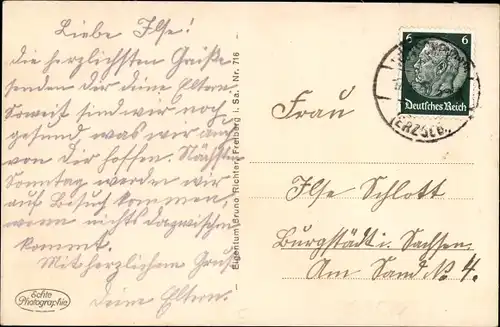 Liebe Ilse!
Die herzlichsten Grüße
senden Dir deine Eltern
Soweit sind wir noch
gesund was wir auch
von Dir hoffen. Nächsten
Sonntag werden wir
auf Besuch kommen,
wenn nichts dazwischen
kommt.
Mit herzlichem Gruß
Deine Eltern.
Echte
Photographie
Eigentum Bruno Richter, Freiberg i. Sa. Nr. 716
6 6
Deutsches Reich
(ERZGEB.)
Frau
Ilse Schlott
Burgstädt i. Sachsen
Am Sand No 4.